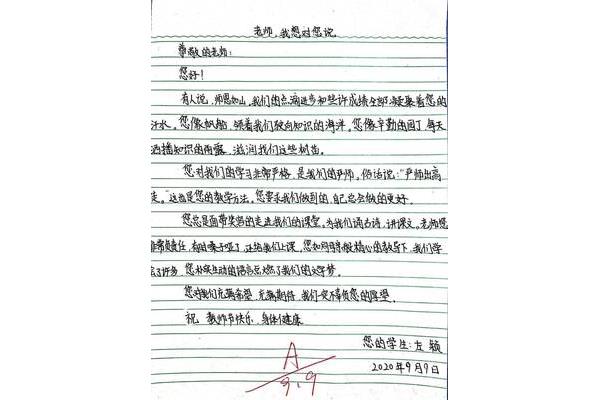 老师,我想对您说
尊敬的老师:
您好!
有人说,师恩如山,我们的点滴进步和些许成绩全部凝聚着您的
汗水。您像帆船,领着我们驶向知识的海洋。您像辛勤的园丁,每天
洒播知识的雨露,滋润我们这些树苗。
您对我们的学习非常严格,是我们的严师。俗话说:"严师出高
徒。"这也是您的教学方法。您要求我们做到的,自己总会做的更好。
您总是面带笑容的走进我们的课堂。为我们诵古诗,讲课文。老师您
非常负责任,有时嗓子哑了,还给我们上课。您如同 精心的教导下,我们学
会了许多,您朴实生动的语言点燃了我们的文学梦。
您对我们充满希望,充满期待,我们一定不辜负您的厚望。
祝:教师节快乐,身体健康
您的学生:左颖
2020年9月9日
A
9.9